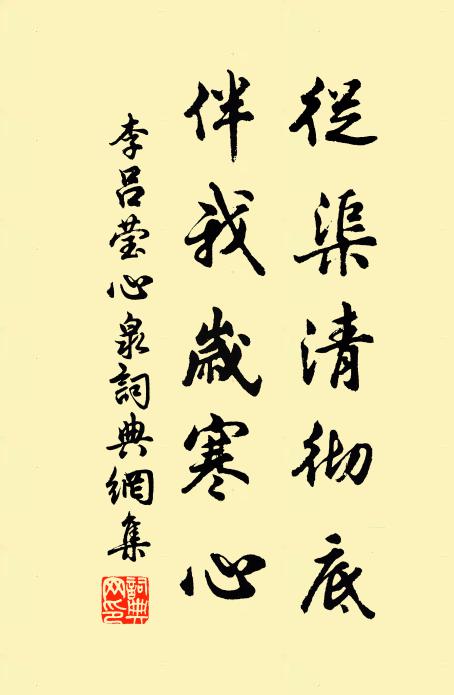 從渠清彻底
伴我歲寒心
李吕莹心泉詞典網集
詞典网印